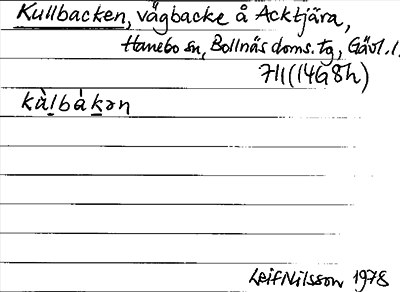 Kullbacken, vägbacke å Acktjära,
Hanebo sn, Bollnäs doms. tg, Gävl. l.
711(14G8h)
kàlbàkən
Leif Nilsson 1978